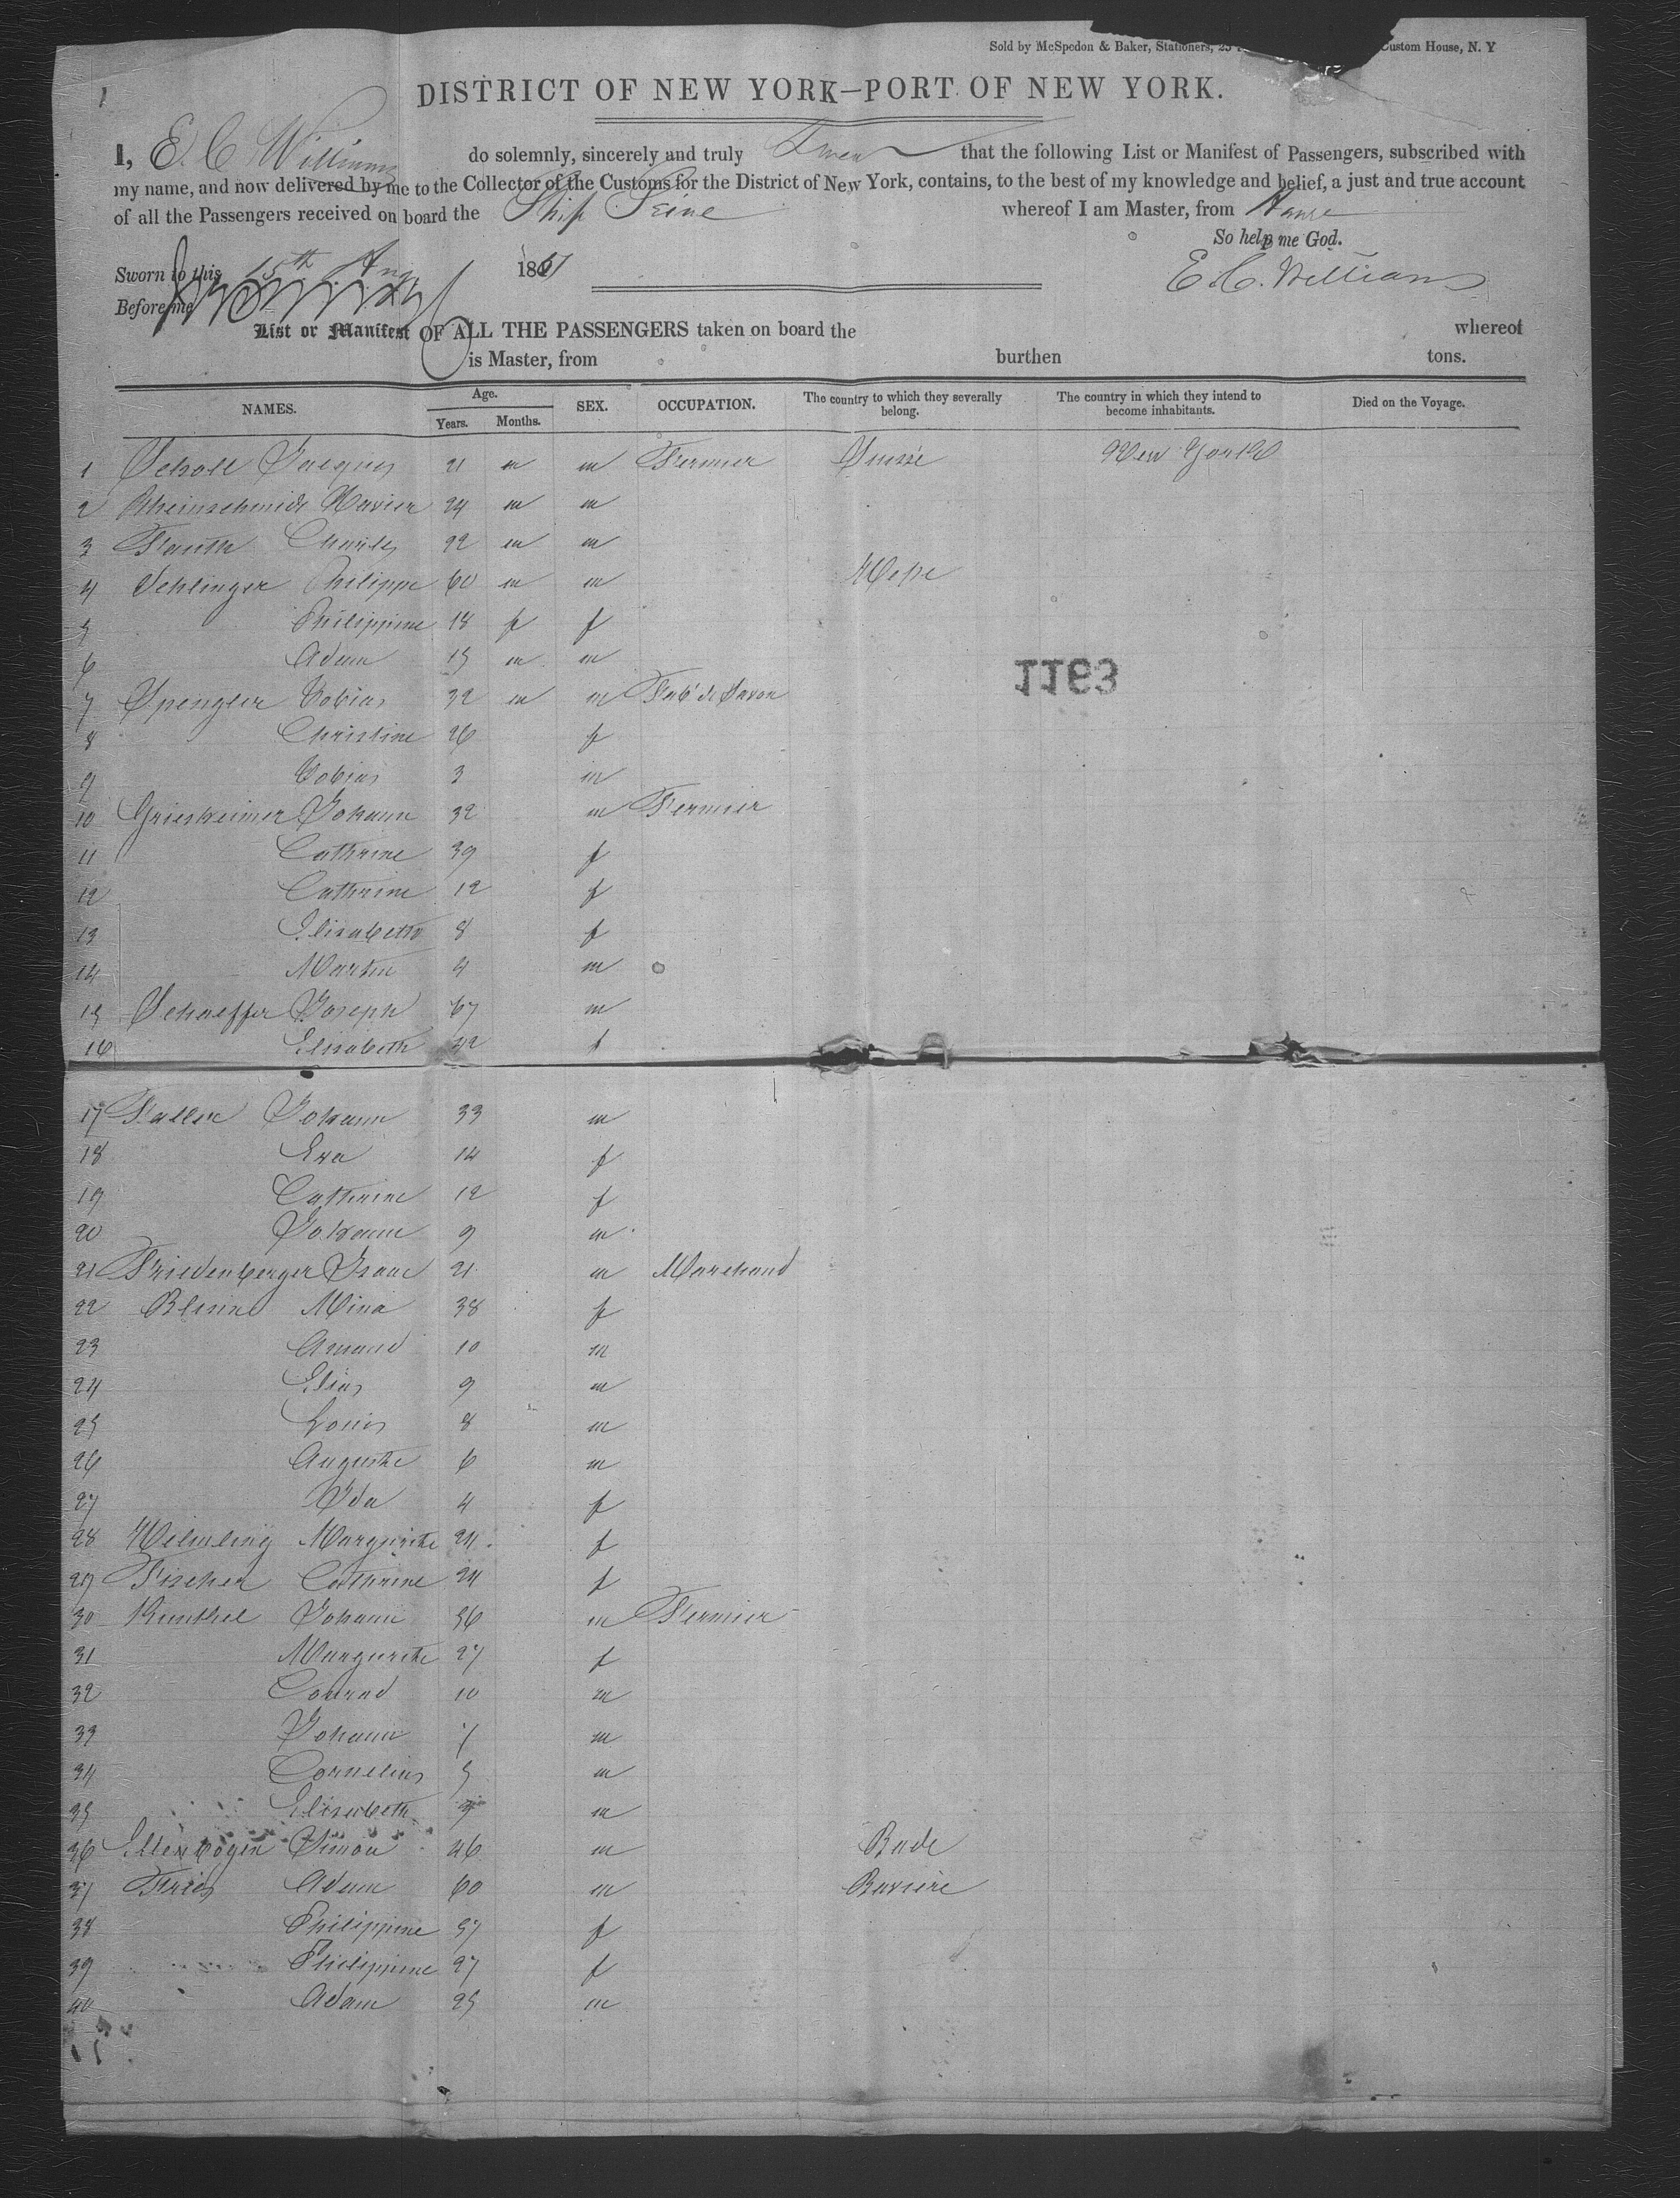 Sold by McSpedon & Baker, Stationers, 25 Custom House, N. Y
DISTRICT OF NEW YORK—PORT OF NEW YORK.
I, E. C. Williams do solemnly, sincerely and truly Swear that the following List or Manifest of Passengers, subscribed with
my name, and now delivered by me to the Collector of the Customs for the District of New York, contains, to the best of my knowledge and belief, a just and true account
of all the Passengers received on board the Ship Seine whereof I am Master, from Havre
So help me God.
Sworn to this 15th Aug 1861
E. C. Williams
Before me
List or Manifest OF ALL THE PASSENGERS taken on board the whereof
is Master, from burthen tons.
NAMES. Age. Years. Months. SEX. OCCUPATION. The country to which they severally belong. The country in which they intend to become inhabitants. Died on the Voyage.
1 Scholl Jacques 21 m m Fermier Suisse New York
2 Rheinschmidt Xavier 24 m m
3 Fauth Charles 22 m m
4 Schlinger Philippe 60 m m Hesse
5 Philippine 18 f f
6 Adam 15 m m
1163
7 Spengler Tobias 32 m m Fab' de Savon
8 Christine 26 f
9 Tobias 3 m
10 Griesheimer Johann 32 m Fermier
11 Cathrine 39 f
12 Cathrine 12 f
13 Elisabeth 8 f
14 Martin 4 m
15 Schaeffer Joseph 67 m
16 Elisabeth 42 f
17 Faller Johann 33 m
18 Eva 14 f
19 Cathrine 12 f
20 Johann 9 m
21 Friedenberger Isaac 21 m Marchand
22 Mina 38 f
23 Amand 10 m
24 Elias 9 m
25 Louis 8 m
26 Auguste 6 m
27 Ida 4 f
28 Margurite 24 f
29 Fischer Cathrine 24 f
30 Kunthel Johann 36 m Fermier
31 Margurite 27 f
32 Conrad 10 m
33 Johann 7 m
34 Cornelius 5 m
35 Elisabeth m
36 Ellenbogen Simon 46 m Bade
37 Fries Adam 60 m Baviere
38 Philippine 57 f
39 Philippine 27 f
40 Adam 25 m